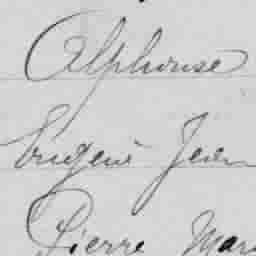 Alphonse
Eugène Jean
Pierre Mari